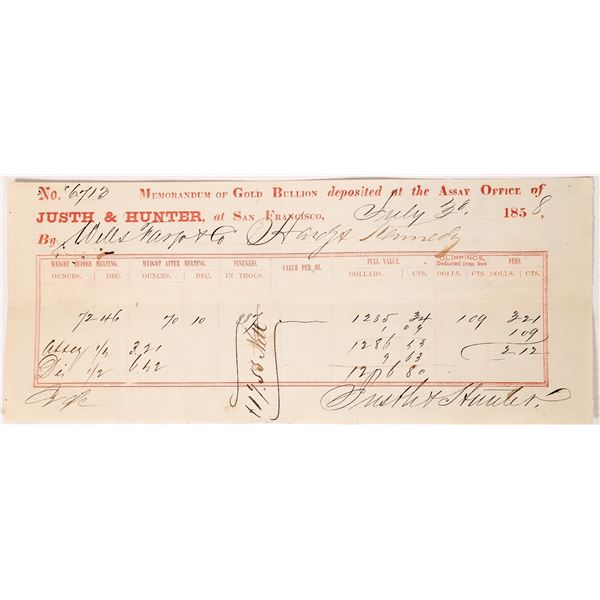 No. 6713 MEMORANDUM OF GOLD BULLION deposited at the ASSAY OFFICE of
JUSTH & HUNTER, at SAN FRANCISCO, July 3d 1858,
By Wells Fargo & Co Kennedy
WEIGHT BEFORE MELTING. WEIGHT AFTER MELTING. FINENESS. VALUE PER OZ. FULL VALUE. CLIPPINGS, FEES.
Deducted from fees
OUNCES. DEC. OUNCES. DEC. IN THOUS. DOLLARS. CTS. DOLLS. CTS. DOLLS. CTS.
72 46 70 10 887 1285 34 1 09 3 21
1 09 1 09
Assay 1/4 3.21 1286 43 2 12
1/2 6.42 9 63
1276 80
Justh & Hunter.